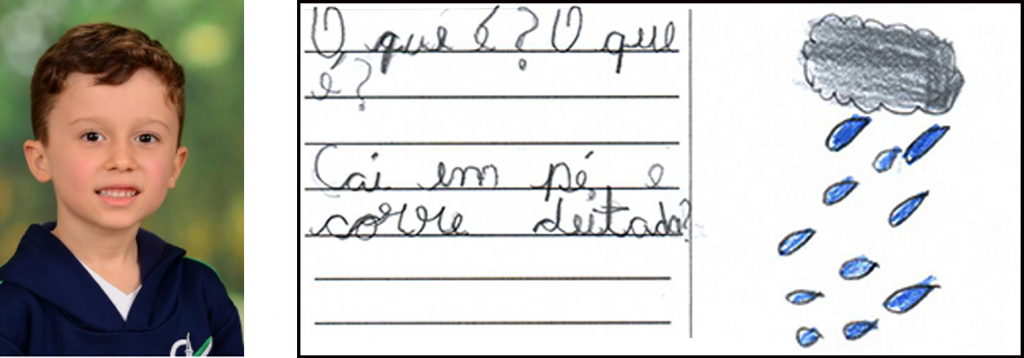 O que é? O que
é?
Cai em pé, e
corre deitada?